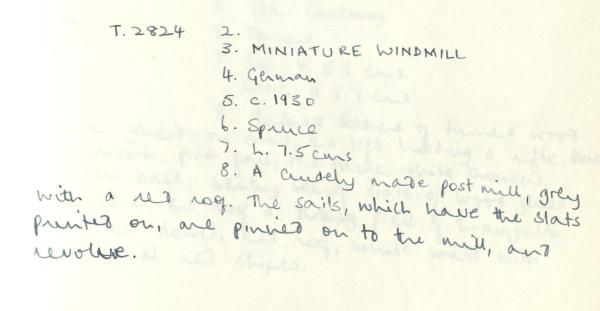 T.2824 2.
3. MINIATURE WINDMILL
4. German
5. c. 1930
6. Spruce
7. h. 7.5 cms
8. A crudely made post mill, grey
with a red roof. The sails, which have the slats
printed on, are pinned on to the mill, and
revolve.